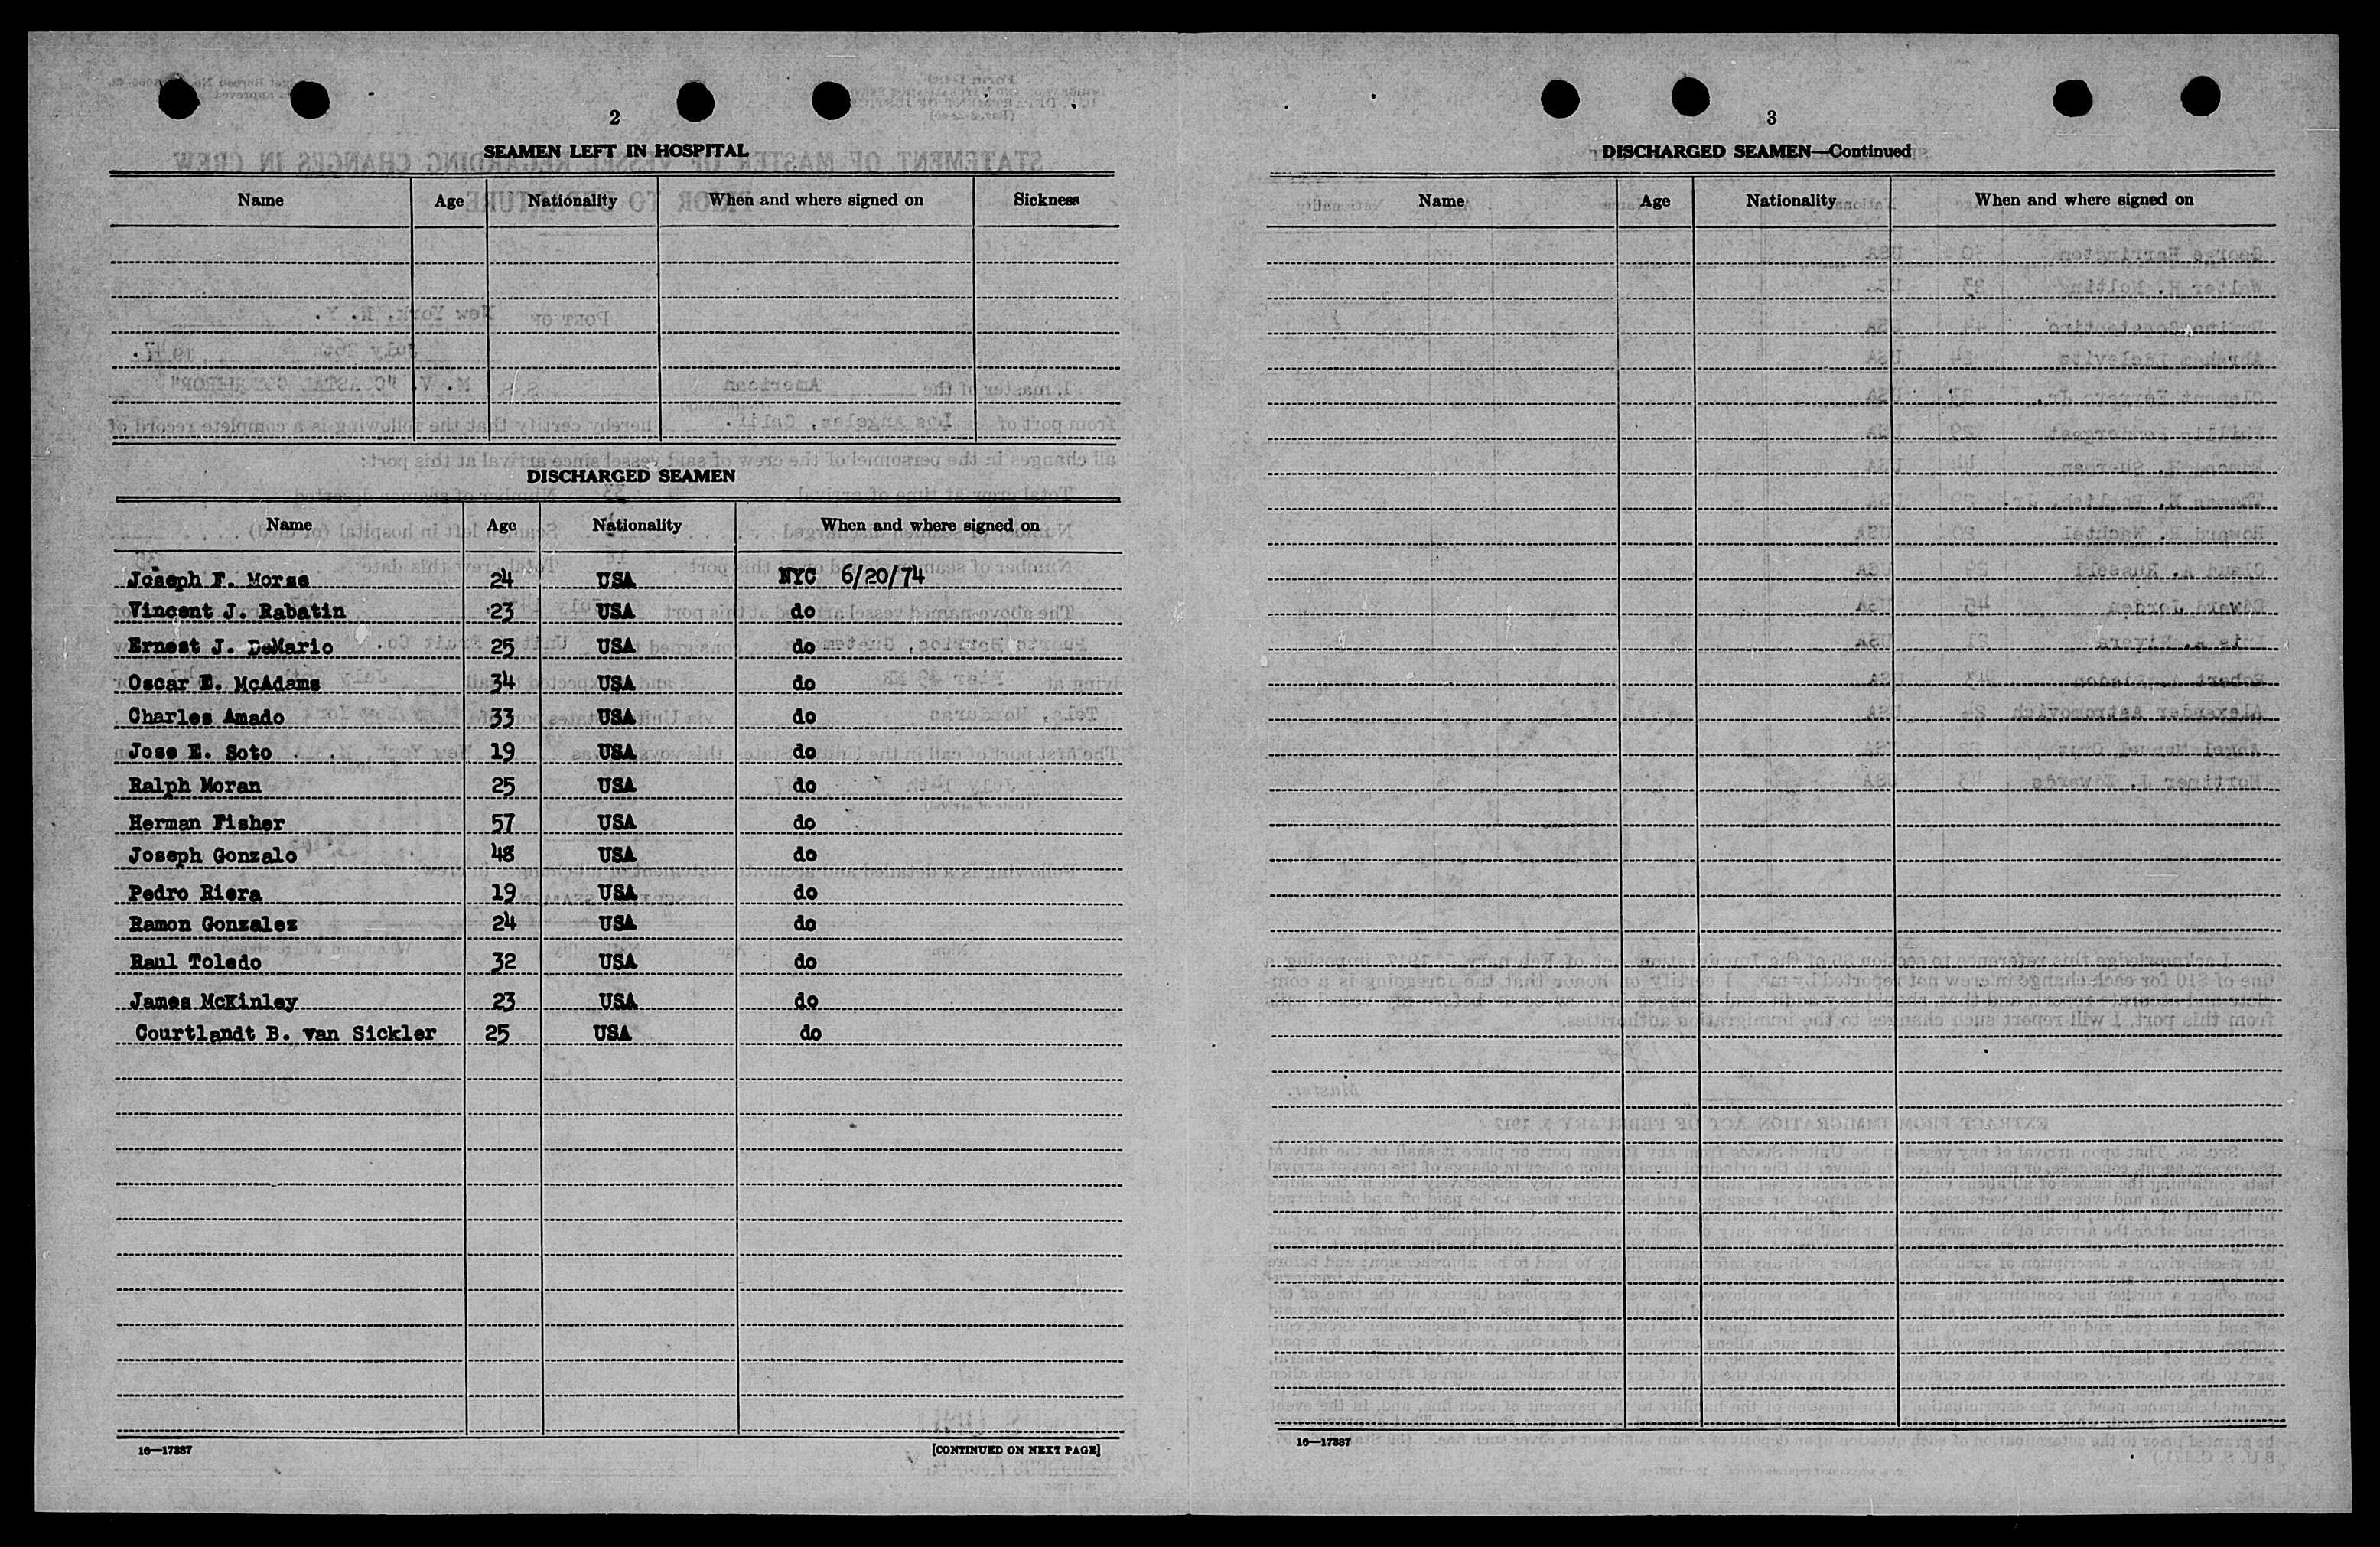 2
SEAMEN LEFT IN HOSPITAL
Name Age Nationality When and where signed on Sickness
DISCHARGED SEAMEN
Name Age Nationality When and where signed on
Joseph F. Morse 24 USA NYC 6/20/74
Vincent J. Rabatin 23 USA do
Ernest J. DeMario 25 USA do
Oscar E. McAdams 34 USA do
Charles Amado 33 USA do
Jose E. Soto 19 USA do
Ralph Moran 25 USA do
Herman Fisher 57 USA do
Joseph Gonzalo 48 USA do
Pedro Riera 19 USA do
Ramon Gonzalez 24 USA do
Raul Toledo 32 USA do
James McKinley 23 USA do
Courtlandt B. van Sickler 25 USA do
16—17387
[CONTINUED ON NEXT PAGE]
3
DISCHARGED SEAMEN—Continued
Name Age Nationality When and where signed on
16—17387